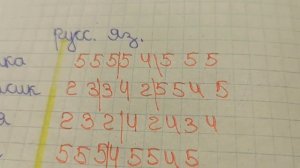 русс. яз.
ка 5 5 5 5 4 5 5 5
сик 2 3 3 4 2 5 5 4 5
я 2 3 2 4 2 4 3 4
5 5 5 4 5 5 4 5